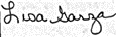 Lisa Garza